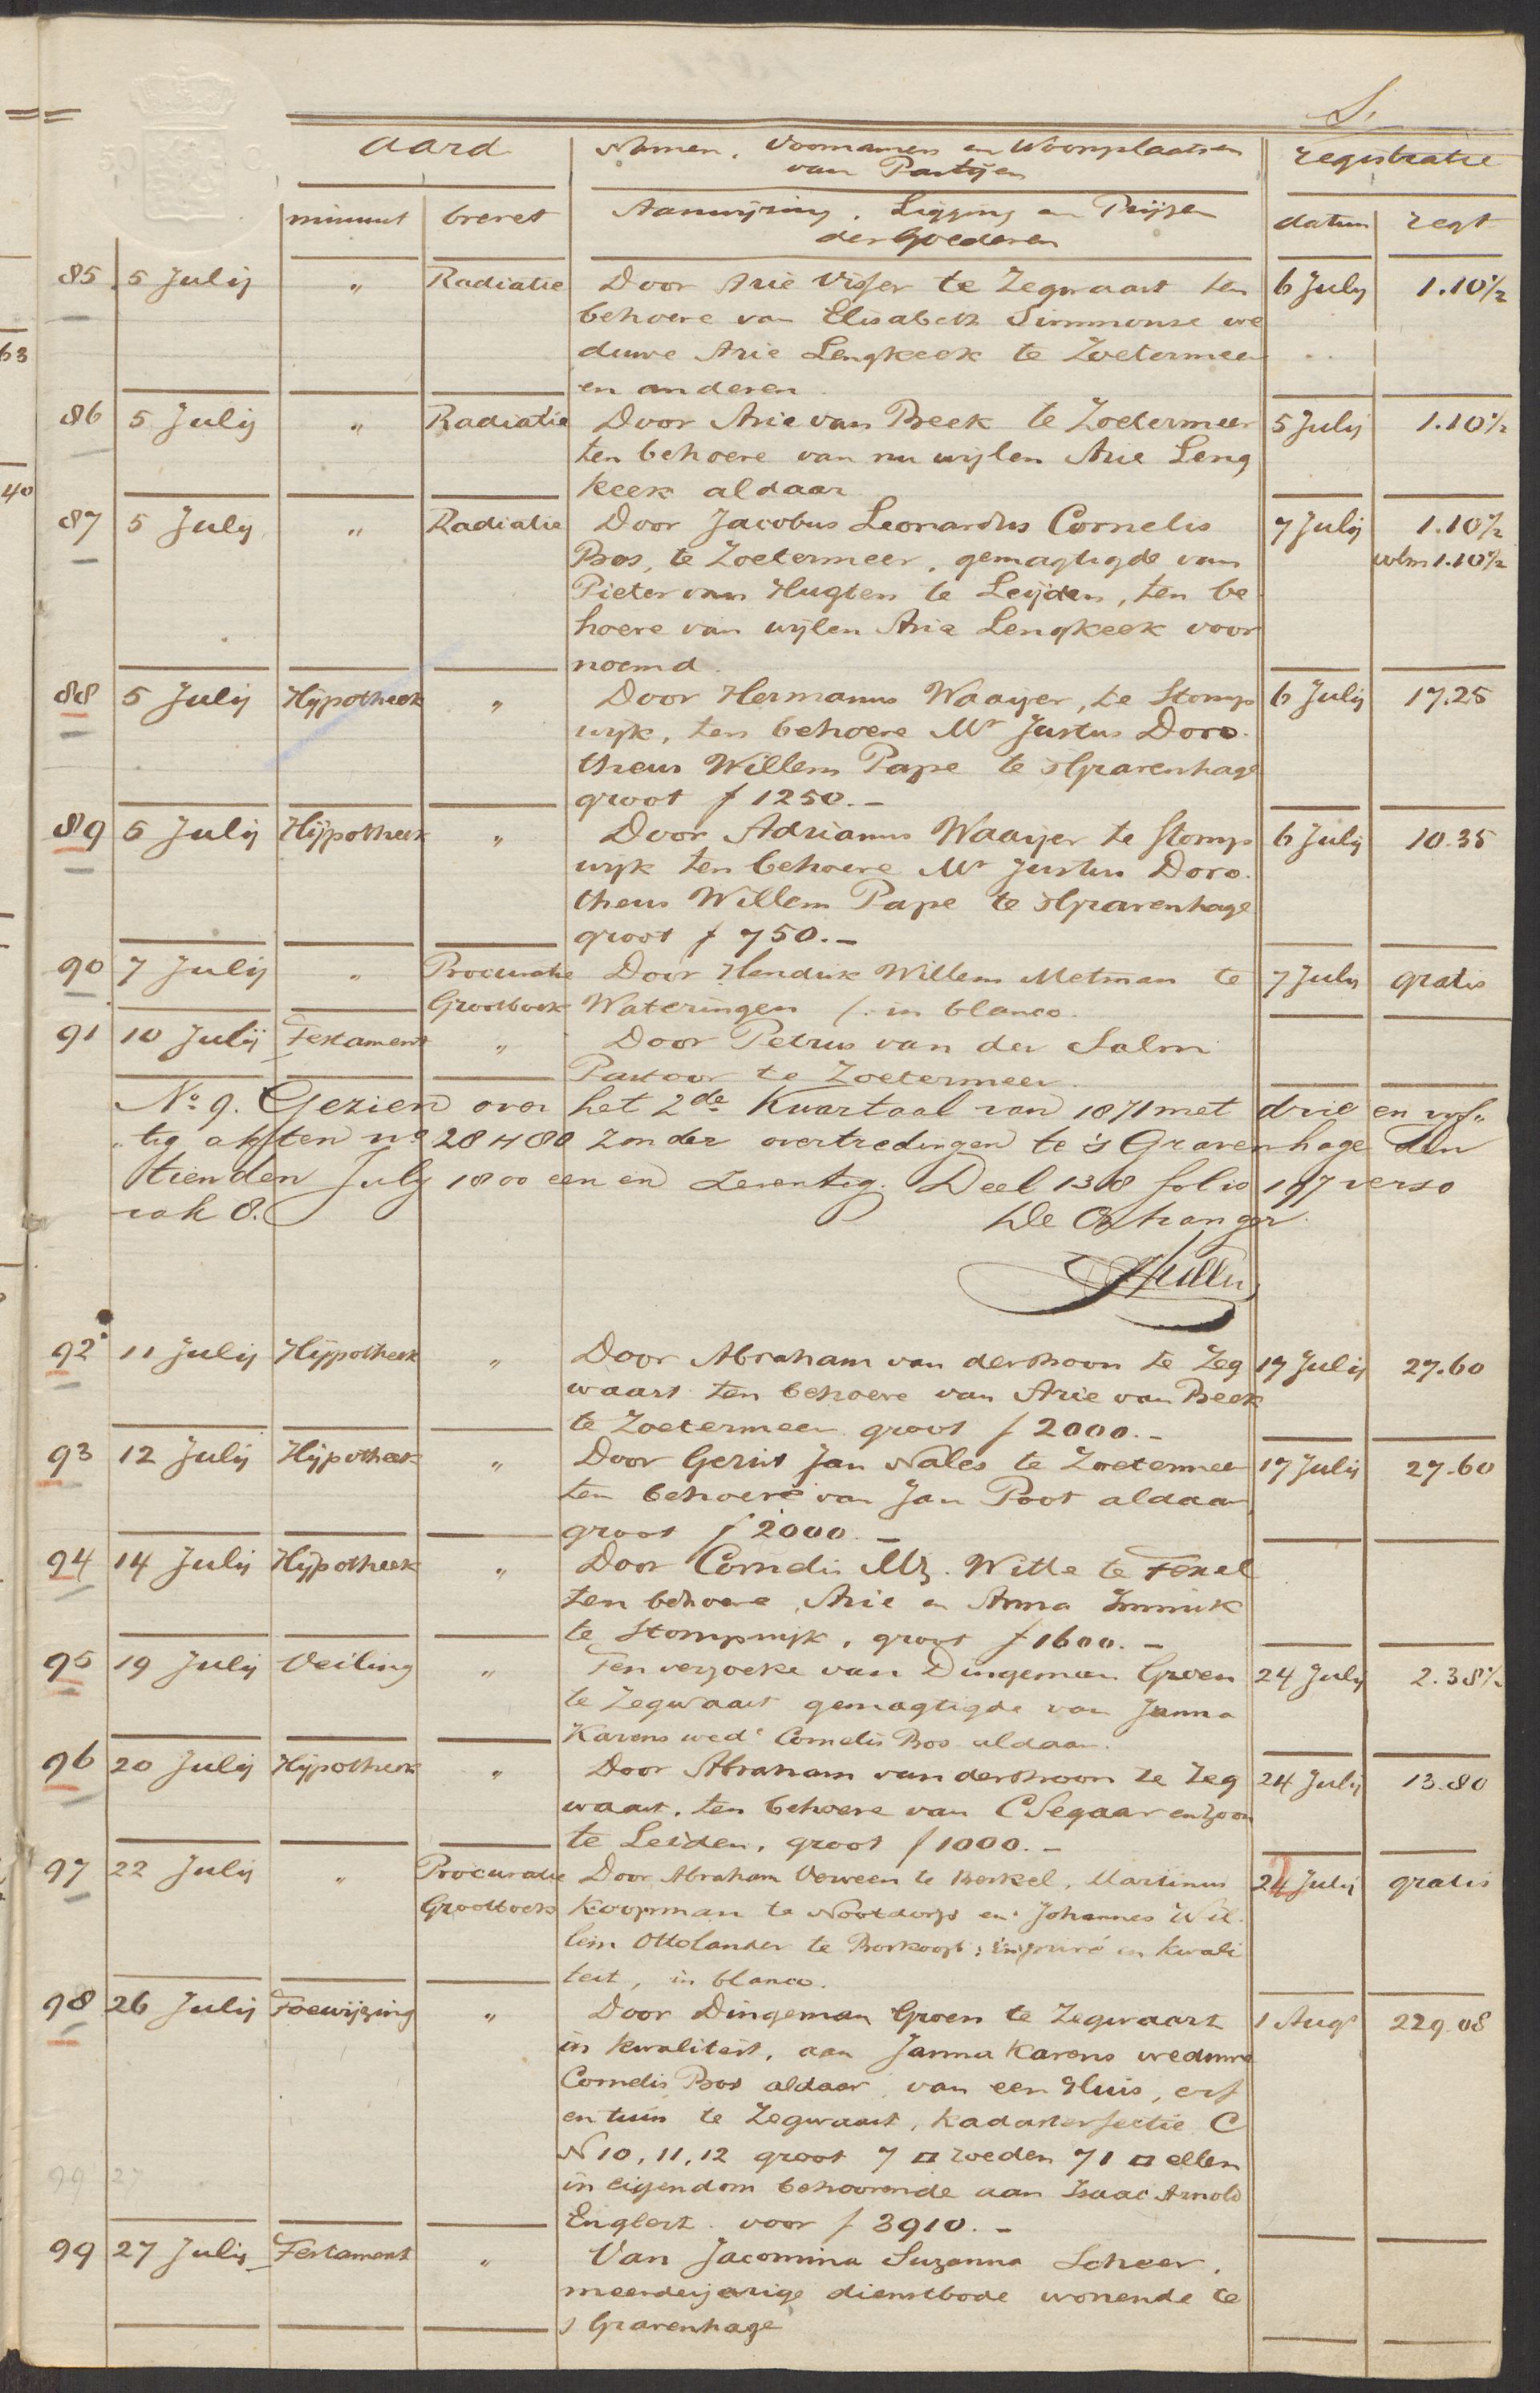 S.
aard
Namen, Voornamen en Woonplaatsen
van Partijen
registratie
minuut brevet
Aanwijzing, Ligging en Prijzen
der Goederen
datum regt
85 5 Julij „ Radiatie Door Arie Visser te Zegwaart ten 6 July 1.10½
behoeve van Elisabeth Simmonse we
63
duwe Arie Lengkeek te Zoetermeer
en anderen
86 5 Julij „ Radiatie Door Arie van Beek te Zoetermeer 5 Julij 1.10½
ten behoeve van nu wylen Arie Leng
40
keek aldaar
87 5 July „ Radiatie Door Jacobus Leonardus Cornelis 7 Julij 1.10½
Bos, te Zoetermeer, gemagtigde van 1.10½
Pieter van Hugten te Leijden, ten be
hoeve van wijlen Arie Lengkeek voor
noemd.
88 5 Julij Hijpotheek „ Door Hermanus Waaijer, te Stomp 6 Julij 17.25
wijk, ten behoeve Mr Justus Doro-
theus Willem Pape te sGravenhage
groot f 1250.–
89 5 Julij Hijpotheek „ Door Adrianus Waaijer te Stomp 6 Julij 10.35
wijk ten behoeve Mr Justus Doro-
theus Willem Pape te sGravenhage
groot f 750.–
90 7 Julij „ Procuratie Door Hendrik Willem Metman te 7 July gratis
Grootboek Wateringen /. in blanco.
91 10 Julij Testament „ Door Petrus van der Salm
Pastoor te Zoetermeer.
No 9. Gezien over het 2de Kwartaal van 1871 met drie en vyf-
„tig akten no 28 a 80 zonder overtredingen te 's Gravenhage den
tienden July 1800 een en zeventig. Deel 138 folio 197 verso
vak 8. De Ontvanger.
92 11 Julij Hijpotheek „ Door Abraham van der Hoorn te Zeg 17 Julij 27.60
waart ten behoeve van Arie van Beek
te Zoetermeer groot f 2000.–
93 12 Julij Hijpotheek „ Door Gerrit Jan Nales te Zoetermeer 17 Julij 27.60
ten behoeve van Jan Poot aldaar,
groot f 2000.–
94 14 Julij Hijpotheek „ Door Cornelis Mz. Witte te Texel
ten behoeve Arie en Anna Immink
te Stompwijk, groot f 1600.–
95 19 Julij Veiling „ Ten verzoeke van Dingeman Groen 24 July 2.38½
te Zegwaart gemagtigde van Janna
Karens wede Cornelis Bos aldaar.
96 20 Julij Hijpotheek „ Door Abraham van der Hoorn te Zeg 24 Julij 13.80
waart, ten behoeve van C Segaar en Zoon
te Leiden, groot f 1000.–
97 22 Julij „ Procuratie Door Abraham Verween te Berkel, Martinus 24 Julij gratis
Grootboek Koopman te Nootdorp en Johannes Wil-
lem Ottolander te Boskoop, in privé en kwali
teit, in blanco.
98 26 Julij Toewijzing „ Door Dingeman Groen te Zegwaart 1 Augs 229.08
in kwaliteit, aan Janna Karens weduwe
Cornelis Bos aldaar, van een Huis, erf
en tuin te Zegwaart, kadaster sectie C
N 10, 11, 12 groot 7 □ roeden 71 □ ellen
99 27
in eigendom behoorende aan Isaac Arnold
Englert. voor f 3910.–
99 27 Julij Testament „ Van Jacomina Suzanna Scheer,
meerderjarige dienstbode wonende te
s Gravenhage